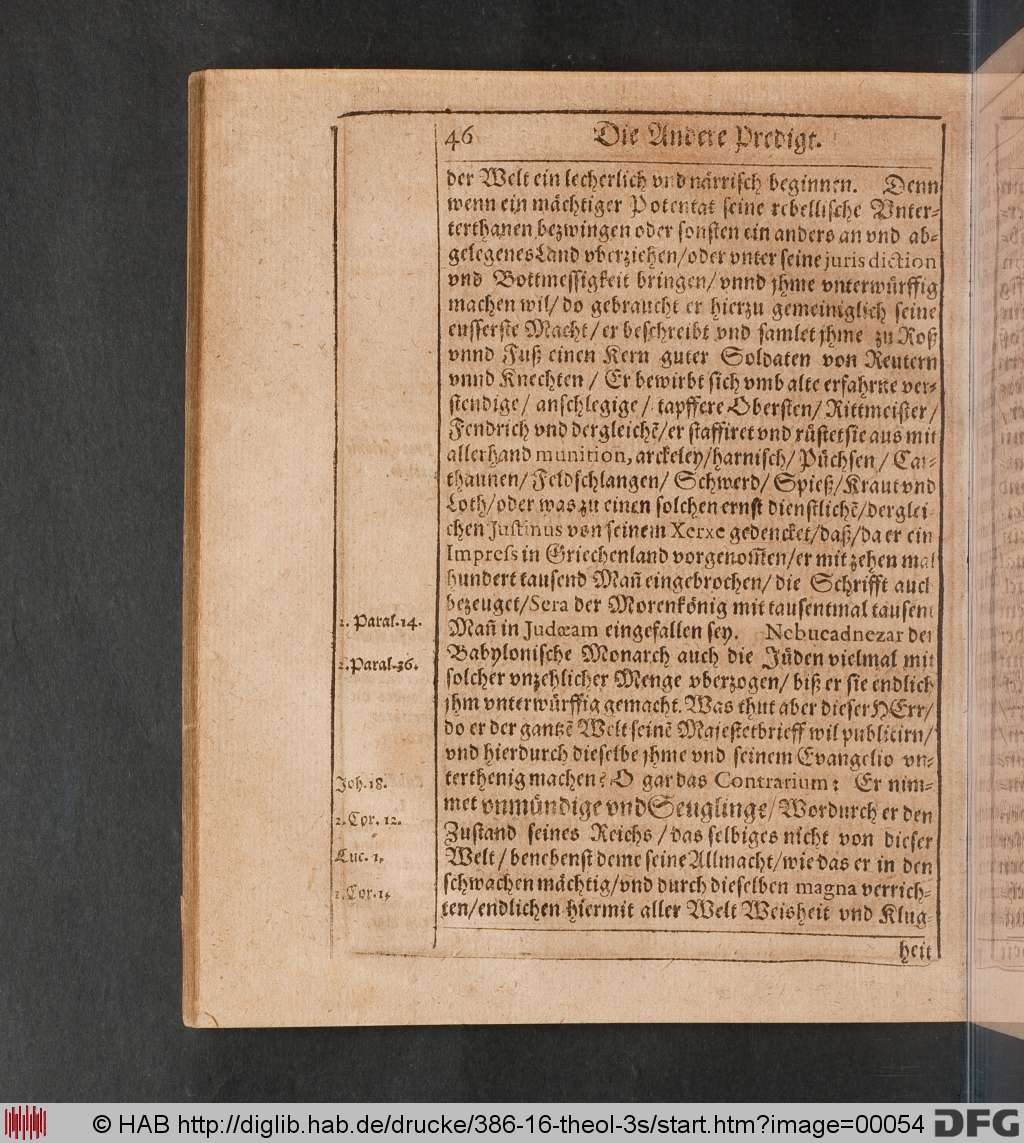 46 Die Andere Predigt.
der Welt ein lecherlich vnd närrisch beginnen. Denn
wenn ein mächtiger Potentat seine rebellische Vnter-
terthanen bezwingen oder sonsten ein anders an vnd ab-
gelegenes Land vberziehen/oder vnter seine jurisdiction
vnd Bottmessigkeit bringen/vnnd jhme vnterwürffig
machen wil/do gebraucht er hierzu gemeiniglich seine
eusserste Macht/er beschreibt vnd samlet jhme zu Roß
vnnd Fuß einen Kern guter Soldaten von Reutern
vnnd Knechten/Er bewirbt sich vmb alte erfahrne ver-
stendige/anschlegige/tapffere Obersten/Rittmeister/
Fendrich vnd dergleichẽ/er staffiret vnd rüstet sie aus mit
allerhand munition, arckeley/harnisch/Püchsen/Car-
thaunen/Feldschlangen/Schwerd/Spieß/Kraut vnd
Loth/oder was zu einen solchen ernst dienstlichẽ/derglei-
chen Justinus von seinem Xerxe gedencket/daß/da er ein
Impress in Griechenland vorgenom̃en/er mit zehen mal
hundert tausend Mañ eingebrochen/die Schrifft auch
bezeuget/Sera der Morenkönig mit tausentmal tausent
2. Paral. 14. Mañ in Judæam eingefallen sey. Nebucadnezar der
2. Paral. 36. Babylonische Monarch auch die Jüden vielmal mit
solcher vnzehlicher Menge vberzogen/biß er sie endlich
jhm vnterwürffig gemacht. Was thut aber dieser HErr/
do er der gantzẽ Welt seinẽ Majestetbrieff wil publicirn/
vnd hierdurch dieselbe jhme vnd seinem Evangelio vn-
Joh. 18. terthenig machen? O gar das Contrarium: Er nim-
met vnmündige vnd Seuglinge/Wordurch er den
2. Cor. 12. Zustand seines Reichs/das selbiges nicht von dieser
Luc. 1. Welt/benebenst deme seine Allmacht/wie das er in den
1. Cor. 1. schwachen mächtig/vnd durch dieselben magna verrich-
ten/endlichen hiermit aller Welt Weisheit vnd Klug-
heit
© HAB http://diglib.hab.de/drucke/386-16-theol-3s/start.htm?image=00054 DFG